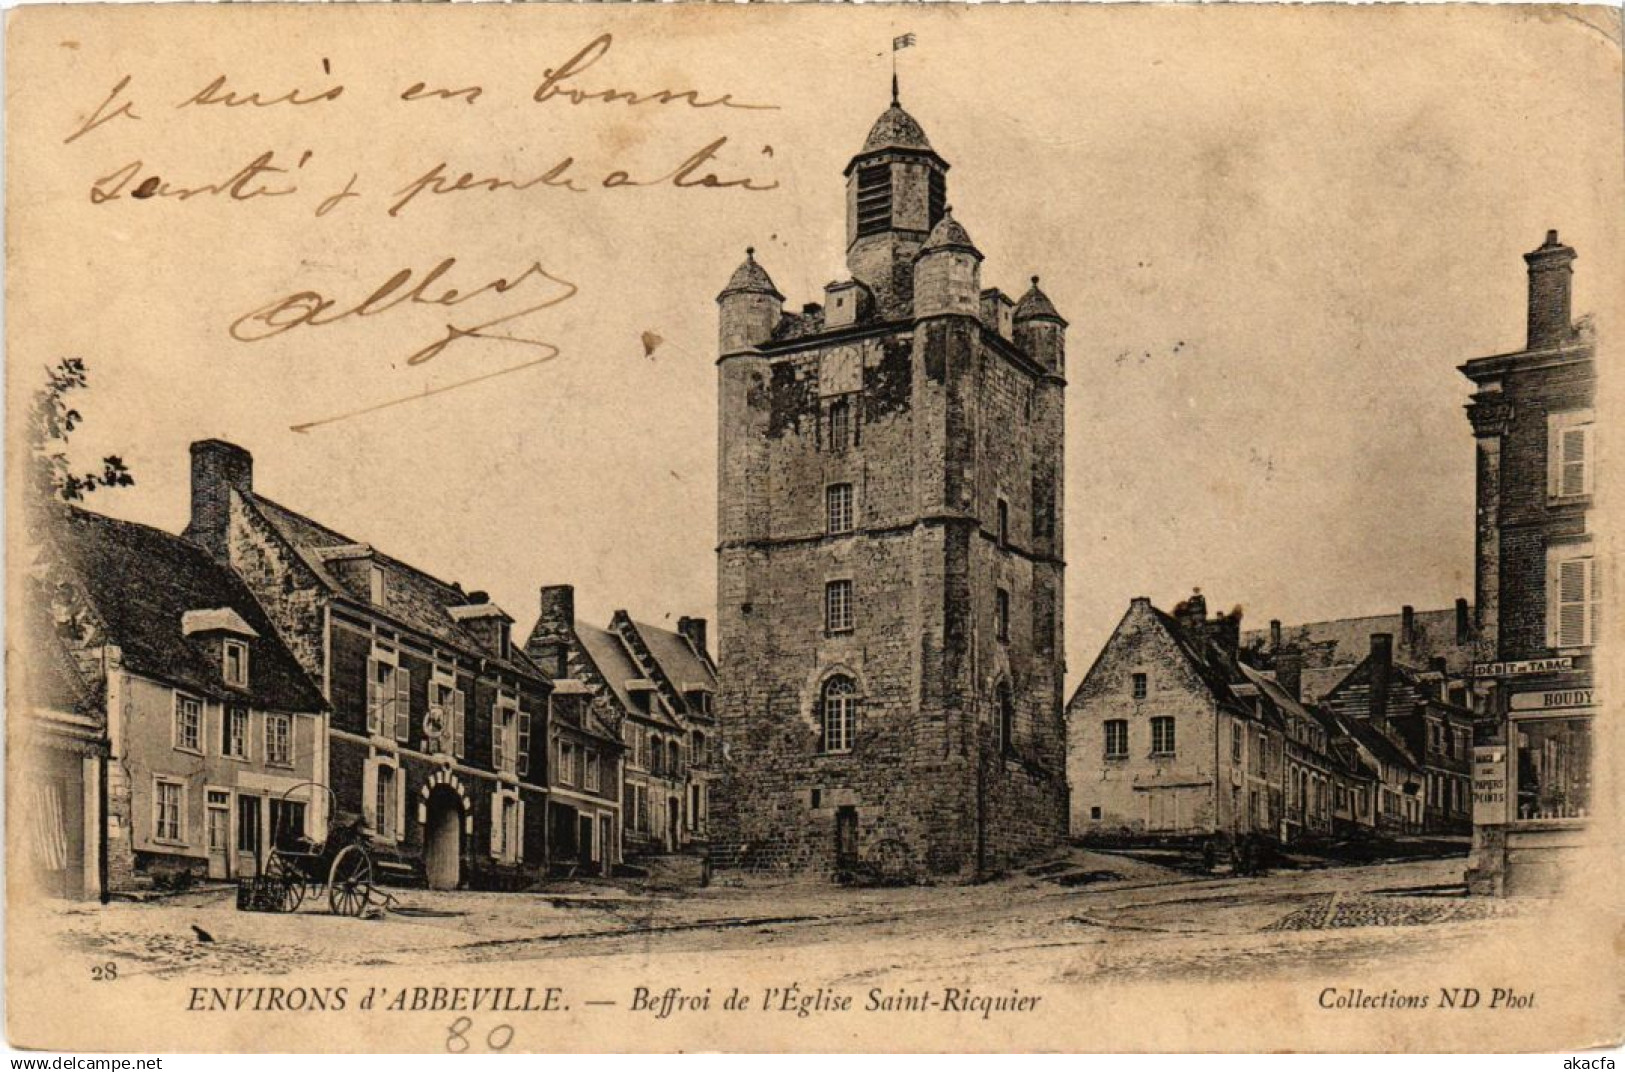 je suis en bonne
santé & pense à toi
Albert
DÉBIT DE TABAC
BOUDY
PAPIERS
PEINTS
28
ENVIRONS d'ABBEVILLE. — Beffroi de l'Église Saint-Ricquier
Collections ND Phot
80
delcampe.net
akacfa